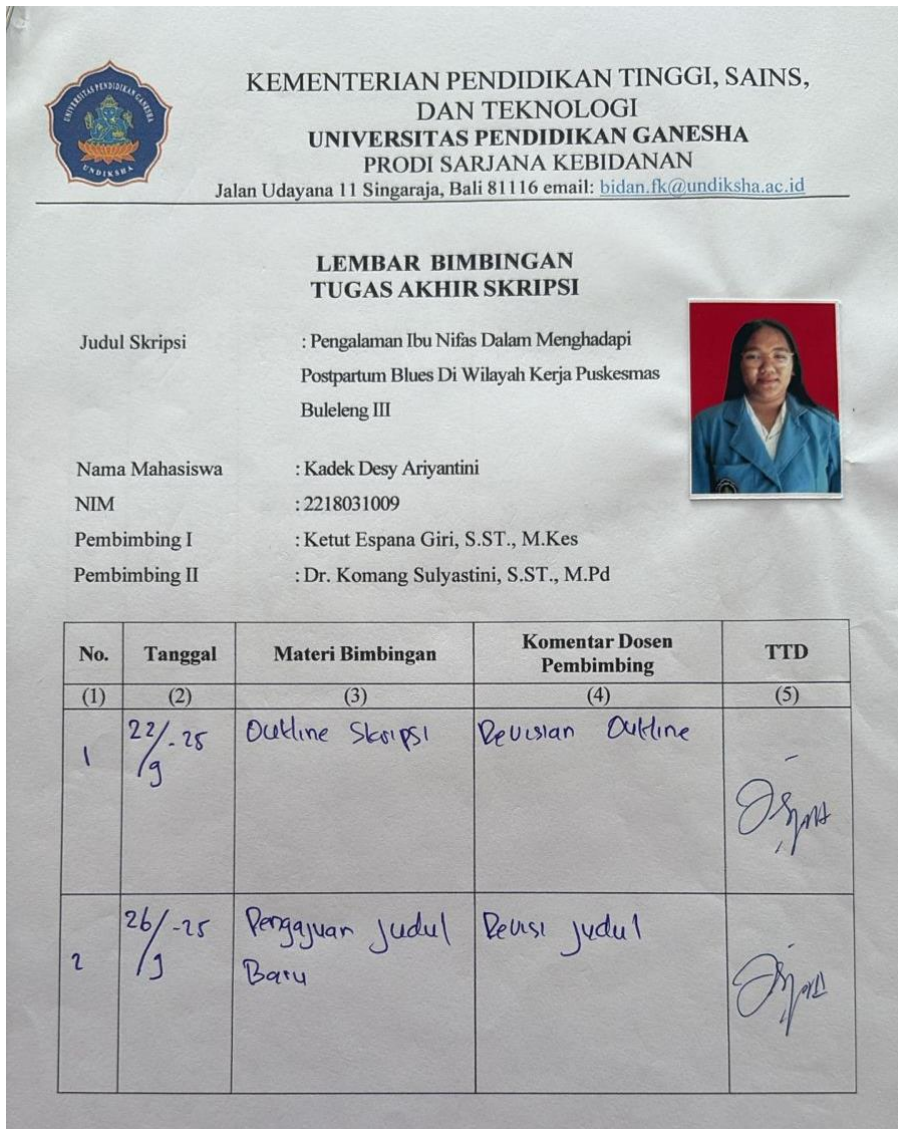 UNIVERSITAS PENDIDIKAN GANESHA
UNDIKSHA
KEMENTERIAN PENDIDIKAN TINGGI, SAINS,
DAN TEKNOLOGI
UNIVERSITAS PENDIDIKAN GANESHA
PRODI SARJANA KEBIDANAN
Jalan Udayana 11 Singaraja, Bali 81116 email: bidan.fk@undiksha.ac.id
LEMBAR BIMBINGAN
TUGAS AKHIR SKRIPSI
Judul Skripsi : Pengalaman Ibu Nifas Dalam Menghadapi
Postpartum Blues Di Wilayah Kerja Puskesmas
Buleleng III
Nama Mahasiswa : Kadek Desy Ariyantini
NIM : 2218031009
Pembimbing I : Ketut Espana Giri, S.ST., M.Kes
Pembimbing II : Dr. Komang Sulyastini, S.ST., M.Pd
No. Tanggal Materi Bimbingan Komentar Dosen Pembimbing TTD
(1) (2) (3) (4) (5)
1 22/9-25 Outline Skripsi Revisian Outline
2 26/9-25 Pengajuan Judul Revisi Judul
Baru